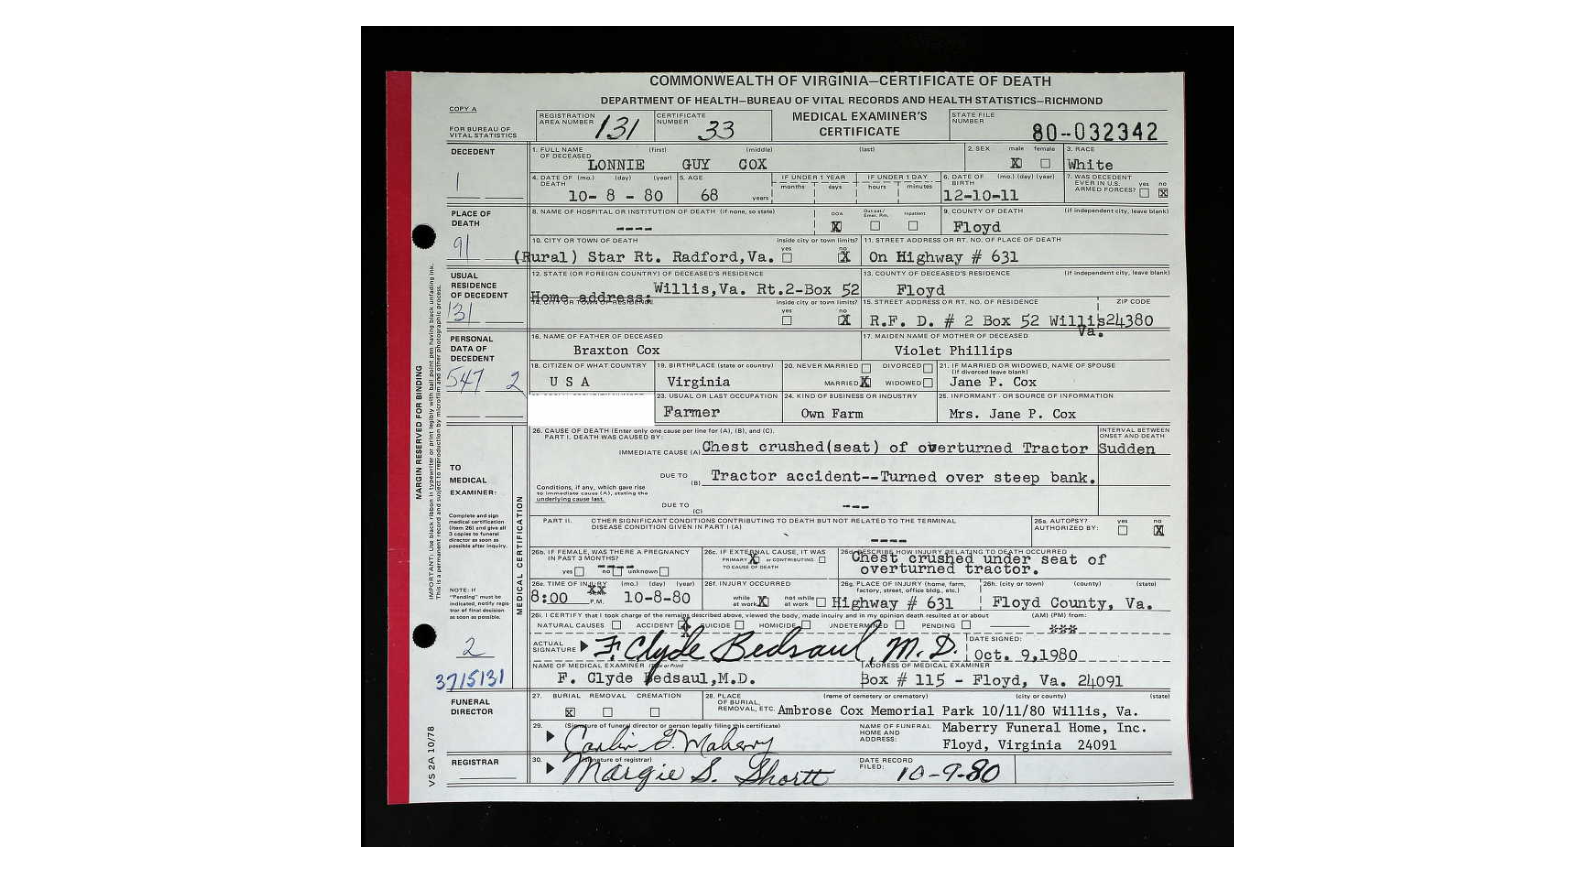 COMMONWEALTH OF VIRGINIA—CERTIFICATE OF DEATH
DEPARTMENT OF HEALTH—BUREAU OF VITAL RECORDS AND HEALTH STATISTICS—RICHMOND
COPY A
FOR BUREAU OF VITAL STATISTICS
REGISTRATION AREA NUMBER 131 CERTIFICATE NUMBER 33 MEDICAL EXAMINER'S CERTIFICATE STATE FILE NUMBER 80-032342
DECEDENT
1
1. FULL NAME OF DECEASED (first) (middle) (last) 2. SEX male female 3. RACE
LONNIE GUY COX X White
4. DATE OF DEATH (mo.) (day) (year) 5. AGE IF UNDER 1 YEAR months days IF UNDER 1 DAY hours minutes 6. DATE OF BIRTH (mo.) (day) (year) 7. WAS DECEDENT EVER IN U.S. ARMED FORCES? yes no
10- 8 - 80 68 years 12-10-11 X
PLACE OF DEATH
91
8. NAME OF HOSPITAL OR INSTITUTION OF DEATH (if none, so state) DOA Inpatient 9. COUNTY OF DEATH (if independent city, leave blank)
---- X Floyd
10. CITY OR TOWN OF DEATH inside city or town limits? yes no 11. STREET ADDRESS OR RT. NO. OF PLACE OF DEATH
(Rural) Star Rt. Radford,Va. X On Highway # 631
USUAL RESIDENCE OF DECEDENT
131
12. STATE (OR FOREIGN COUNTRY) OF DECEASED'S RESIDENCE 13. COUNTY OF DECEASED'S RESIDENCE (if independent city, leave blank)
Home address: Willis,Va. Rt.2-Box 52 Floyd
14. CITY OR TOWN OF RESIDENCE inside city or town limits? yes no 15. STREET ADDRESS OR RT. NO. OF RESIDENCE ZIP CODE
X R.F. D. # 2 Box 52 Willis 24380
Va.
PERSONAL DATA OF DECEDENT
547 2
16. NAME OF FATHER OF DECEASED 17. MAIDEN NAME OF MOTHER OF DECEASED
Braxton Cox Violet Phillips
18. CITIZEN OF WHAT COUNTRY 19. BIRTHPLACE (state or country) 20. NEVER MARRIED DIVORCED MARRIED X WIDOWED 21. IF MARRIED OR WIDOWED, NAME OF SPOUSE (if divorced leave blank)
U S A Virginia Jane P. Cox
23. USUAL OR LAST OCCUPATION 24. KIND OF BUSINESS OR INDUSTRY 25. INFORMANT - OR SOURCE OF INFORMATION
Farmer Own Farm Mrs. Jane P. Cox
MARGIN RESERVED FOR BINDING
IMPORTANT: Use black ribbon in typewriter or print legibly with ball point pen having black unfading ink.
This is a permanent record and subject to reproduction by microfilm and other photographic process.
TO MEDICAL EXAMINER:
Complete and sign medical certification (item 26) and give all 3 copies to funeral director as soon as possible after inquiry.
NOTE: If "Pending" must be indicated, notify registrar of final decision as soon as possible.
2
3715131
MEDICAL CERTIFICATION
26. CAUSE OF DEATH (Enter only one cause per line for (A), (B), and (C). INTERVAL BETWEEN ONSET AND DEATH
PART I. DEATH WAS CAUSED BY:
IMMEDIATE CAUSE (A) Chest crushed(seat) of overturned Tractor Sudden
DUE TO (B) Tractor accident--Turned over steep bank.
Conditions, if any, which gave rise to immediate cause (A), stating the underlying cause last.
DUE TO (C) ---
PART II. OTHER SIGNIFICANT CONDITIONS CONTRIBUTING TO DEATH BUT NOT RELATED TO THE TERMINAL DISEASE CONDITION GIVEN IN PART I (A) 26a. AUTOPSY? AUTHORIZED BY: yes no
---- X
26b. IF FEMALE, WAS THERE A PREGNANCY IN PAST 3 MONTHS? yes no unknown 26c. IF EXTERNAL CAUSE, IT WAS PRIMARY X or CONTRIBUTING TO CAUSE OF DEATH 26d. DESCRIBE HOW INJURY RELATING TO DEATH OCCURRED
Chest crushed under seat of
overturned tractor.
26e. TIME OF INJURY (mo.) (day) (year) 26f. INJURY OCCURRED 26g. PLACE OF INJURY (home, farm, factory, street, office bldg., etc.) 26h. (city or town) (county) (state)
8:00 XX P.M. 10-8-80 while at work X not while at work Highway # 631 Floyd County, Va.
26i. I CERTIFY that I took charge of the remains described above, viewed the body, made inquiry and in my opinion death resulted at or about (AM) (PM) from:
NATURAL CAUSES ACCIDENT X SUICIDE HOMICIDE UNDETERMINED PENDING
ACTUAL SIGNATURE F. Clyde Bedsaul, M.D. DATE SIGNED: Oct. 9,1980
NAME OF MEDICAL EXAMINER (Type or Print) ADDRESS OF MEDICAL EXAMINER
F. Clyde Bedsaul,M.D. Box # 115 - Floyd, Va. 24091
FUNERAL DIRECTOR
27. BURIAL REMOVAL CREMATION 28. PLACE OF BURIAL, REMOVAL, ETC. (name of cemetery or crematory) (city or county) (state)
X Ambrose Cox Memorial Park 10/11/80 Willis, Va.
29. (Signature of funeral director or person legally filing this certificate) NAME OF FUNERAL HOME AND ADDRESS: Maberry Funeral Home, Inc.
Maberry Floyd, Virginia 24091
REGISTRAR
30. (Signature of registrar) DATE RECORD FILED: 10-9-80
Margie S. Shortt
VS 2A 10/78